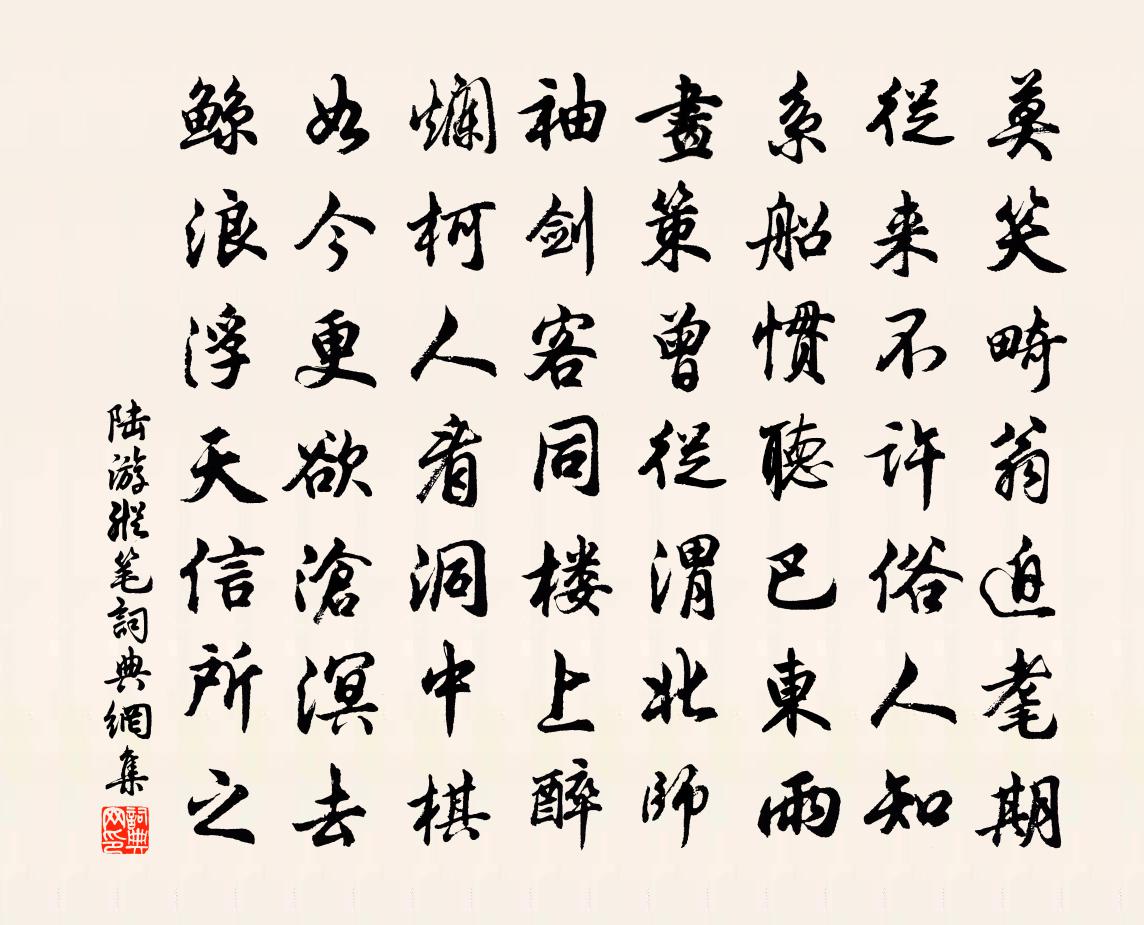 莫笑畸翁迫耄期
從来不許俗人知
系船慣聽巴東雨
畫策曾從渭北師
袖剑客同楼上醉
爛柯人看洞中棋
如今更欲滄溟去
鲸浪浮天信所之
陆游縱笔詞典網集
詞典网印